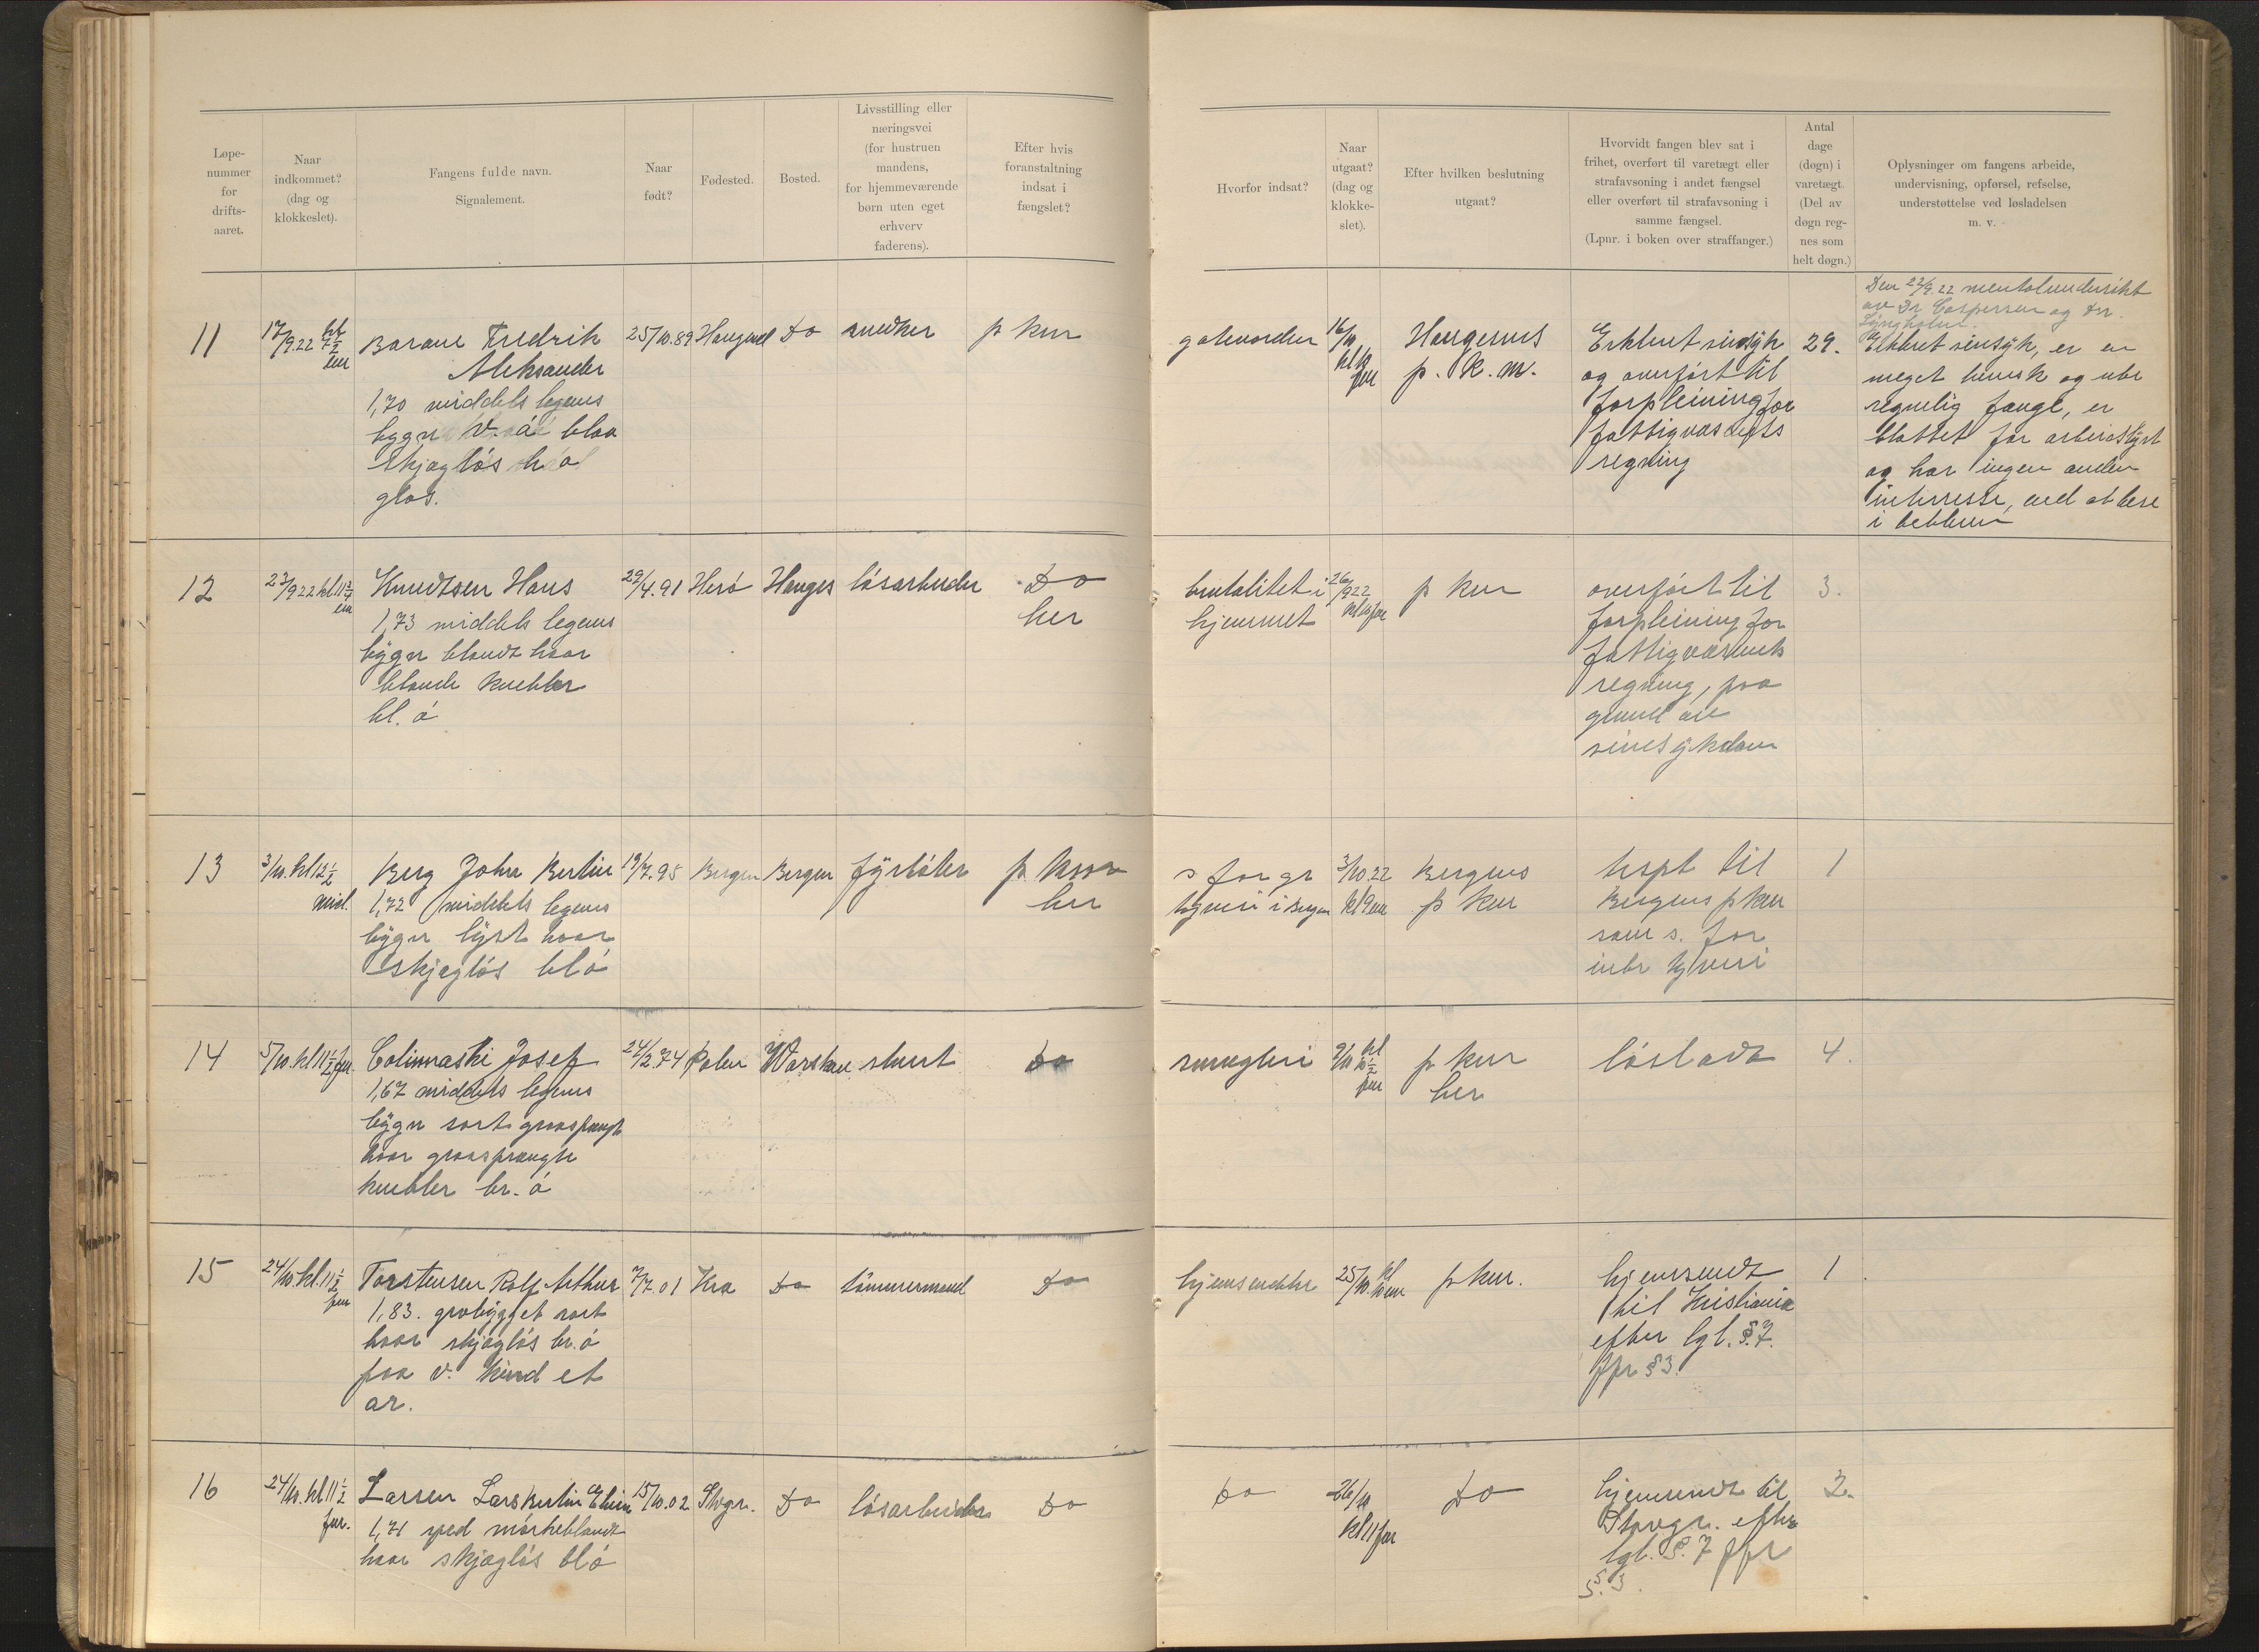 Løpe-
nummer
for
drifts-
aaret.
Naar
indkommet?
(dag og
klokkeslet).
Fangens fulde navn.
Signalement.
Naar
født?
Fødested.
Bosted.
Livsstilling eller
næringsvei
(for hustruen
mandens,
for hjemmeværende
børn uten eget
erhverv
faderens).
Efter hvis
foranstaltning
indsat i
fængslet?
Hvorfor indsat?
Naar
utgaat?
(dag og
klokke-
slet).
Efter hvilken beslutning
utgaat?
Hvorvidt fangen blev sat i
frihet, overført til varetægt eller
strafavsoning i andet fængsel
eller overført til strafavsoning i
samme fængsel.
(Lpnr. i boken over straffanger.)
Antal
dage
(døgn) i
varetægt.
(Del av
døgn reg-
nes som
helt døgn.)
Oplysninger om fangens arbeide,
undervisning, opførsel, refselse,
understøttelse ved løsladelsen
m. v.
11
17/9.22 kl 7½ em
Fredrik
Aleksander
1,70 middels legems
bygn v. ø blaa
skjægløs h ø
glas.
25/10.89
Haugesd
Do
snedker
p km
16/10 kl
Haugesunds
p. k. m.
Erklært sindsyk
og overført til
forpleining for
fattigvæsenets
regning
29.
Den 22/9.22 mentalundersøkt
av Dr Caspersen og Dr.
Lyngholm.
Erklæret sinsyk, er en
meget lumsk og ube
regnelig fange, er
blottet for arbeidslyst
og har ingen anden
interresse, end at læse
i bibelen
12
23/9 22 kl 11½ em
Knudtsen Hans
1,73 middels legems
bygn blondt haar
blonde knebler
bl. ø
29/4.91
Herø
Hauges
løsarbeider
Do
her
brutalitet i
hjemmet
26/9 22
kl 10 fm
p km
overført til
forpleining for
fattigvæsenets
regning, paa
grund av
sinsykdom
3.
13
3/10. kl 12½
mid.
Berg John Bertin
1,72 middels legems
bygn lyst haar
skjægløs bl ø
19/7.95
Bergen
Bergen
fyrbøter
p. km
her
s for gr
tyveri i Bergen
3/10.22
kl 9 em
Bergens
p km
trspt til
Bergens p km
som s. for
inbr tyveri
1
14
5/10. kl 11½ fm
Josef
1,67 middels legems
bygn sort graasprængt
haar graasprængte
knebler br. ø
24/2.74
Polen
Warshau
stuert
Do
smugleri
9/10 kl 10½ fm
p km
her
løsladt
4.
15
24/10 kl. 11½ fm
Torstensen Rolf Arthur
1,83. grovbygget sort
haar skjægløs br. ø
paa v. kind et
ar.
7/7.01
Kra
Do
tømmermand
Do
hjemsendelse
25/10. kl 10 em
p km.
hjemsendt
til Kristiania
efter lgl. §. 7.
jfr § 3
1
16
24/10. kl 11½
fm.
Larsen Lars Bertin
1,71 sped mørkeblondt
haar skjægløs bl ø
15/10.02
Stvgr.
Do
løsarbeider
Do
Do
26/10
kl 11 fm
Do
hjemsendt til
Stavgr. efter
lgl. §. 7 jfr
§. 3.
2.